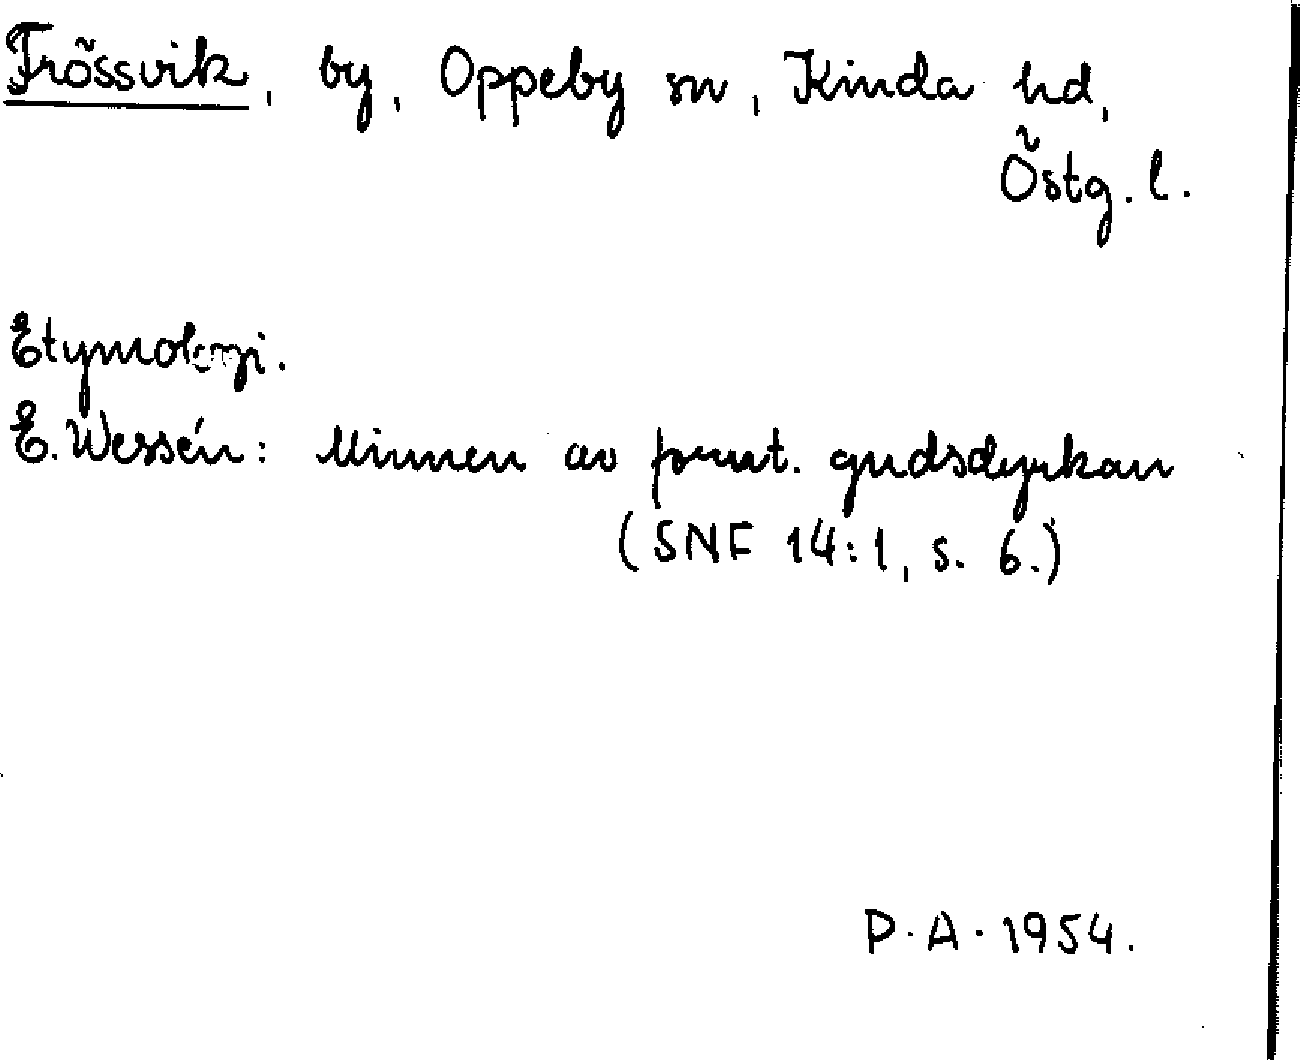 Frössvik, by, Oppeby sn, Kinda hd,
Östg. l.
Etymologi.
E. Wessén: Minnen av fornt. gudsdyrkan
(SNF 14:1, s. 6.)
P. A. 1954.